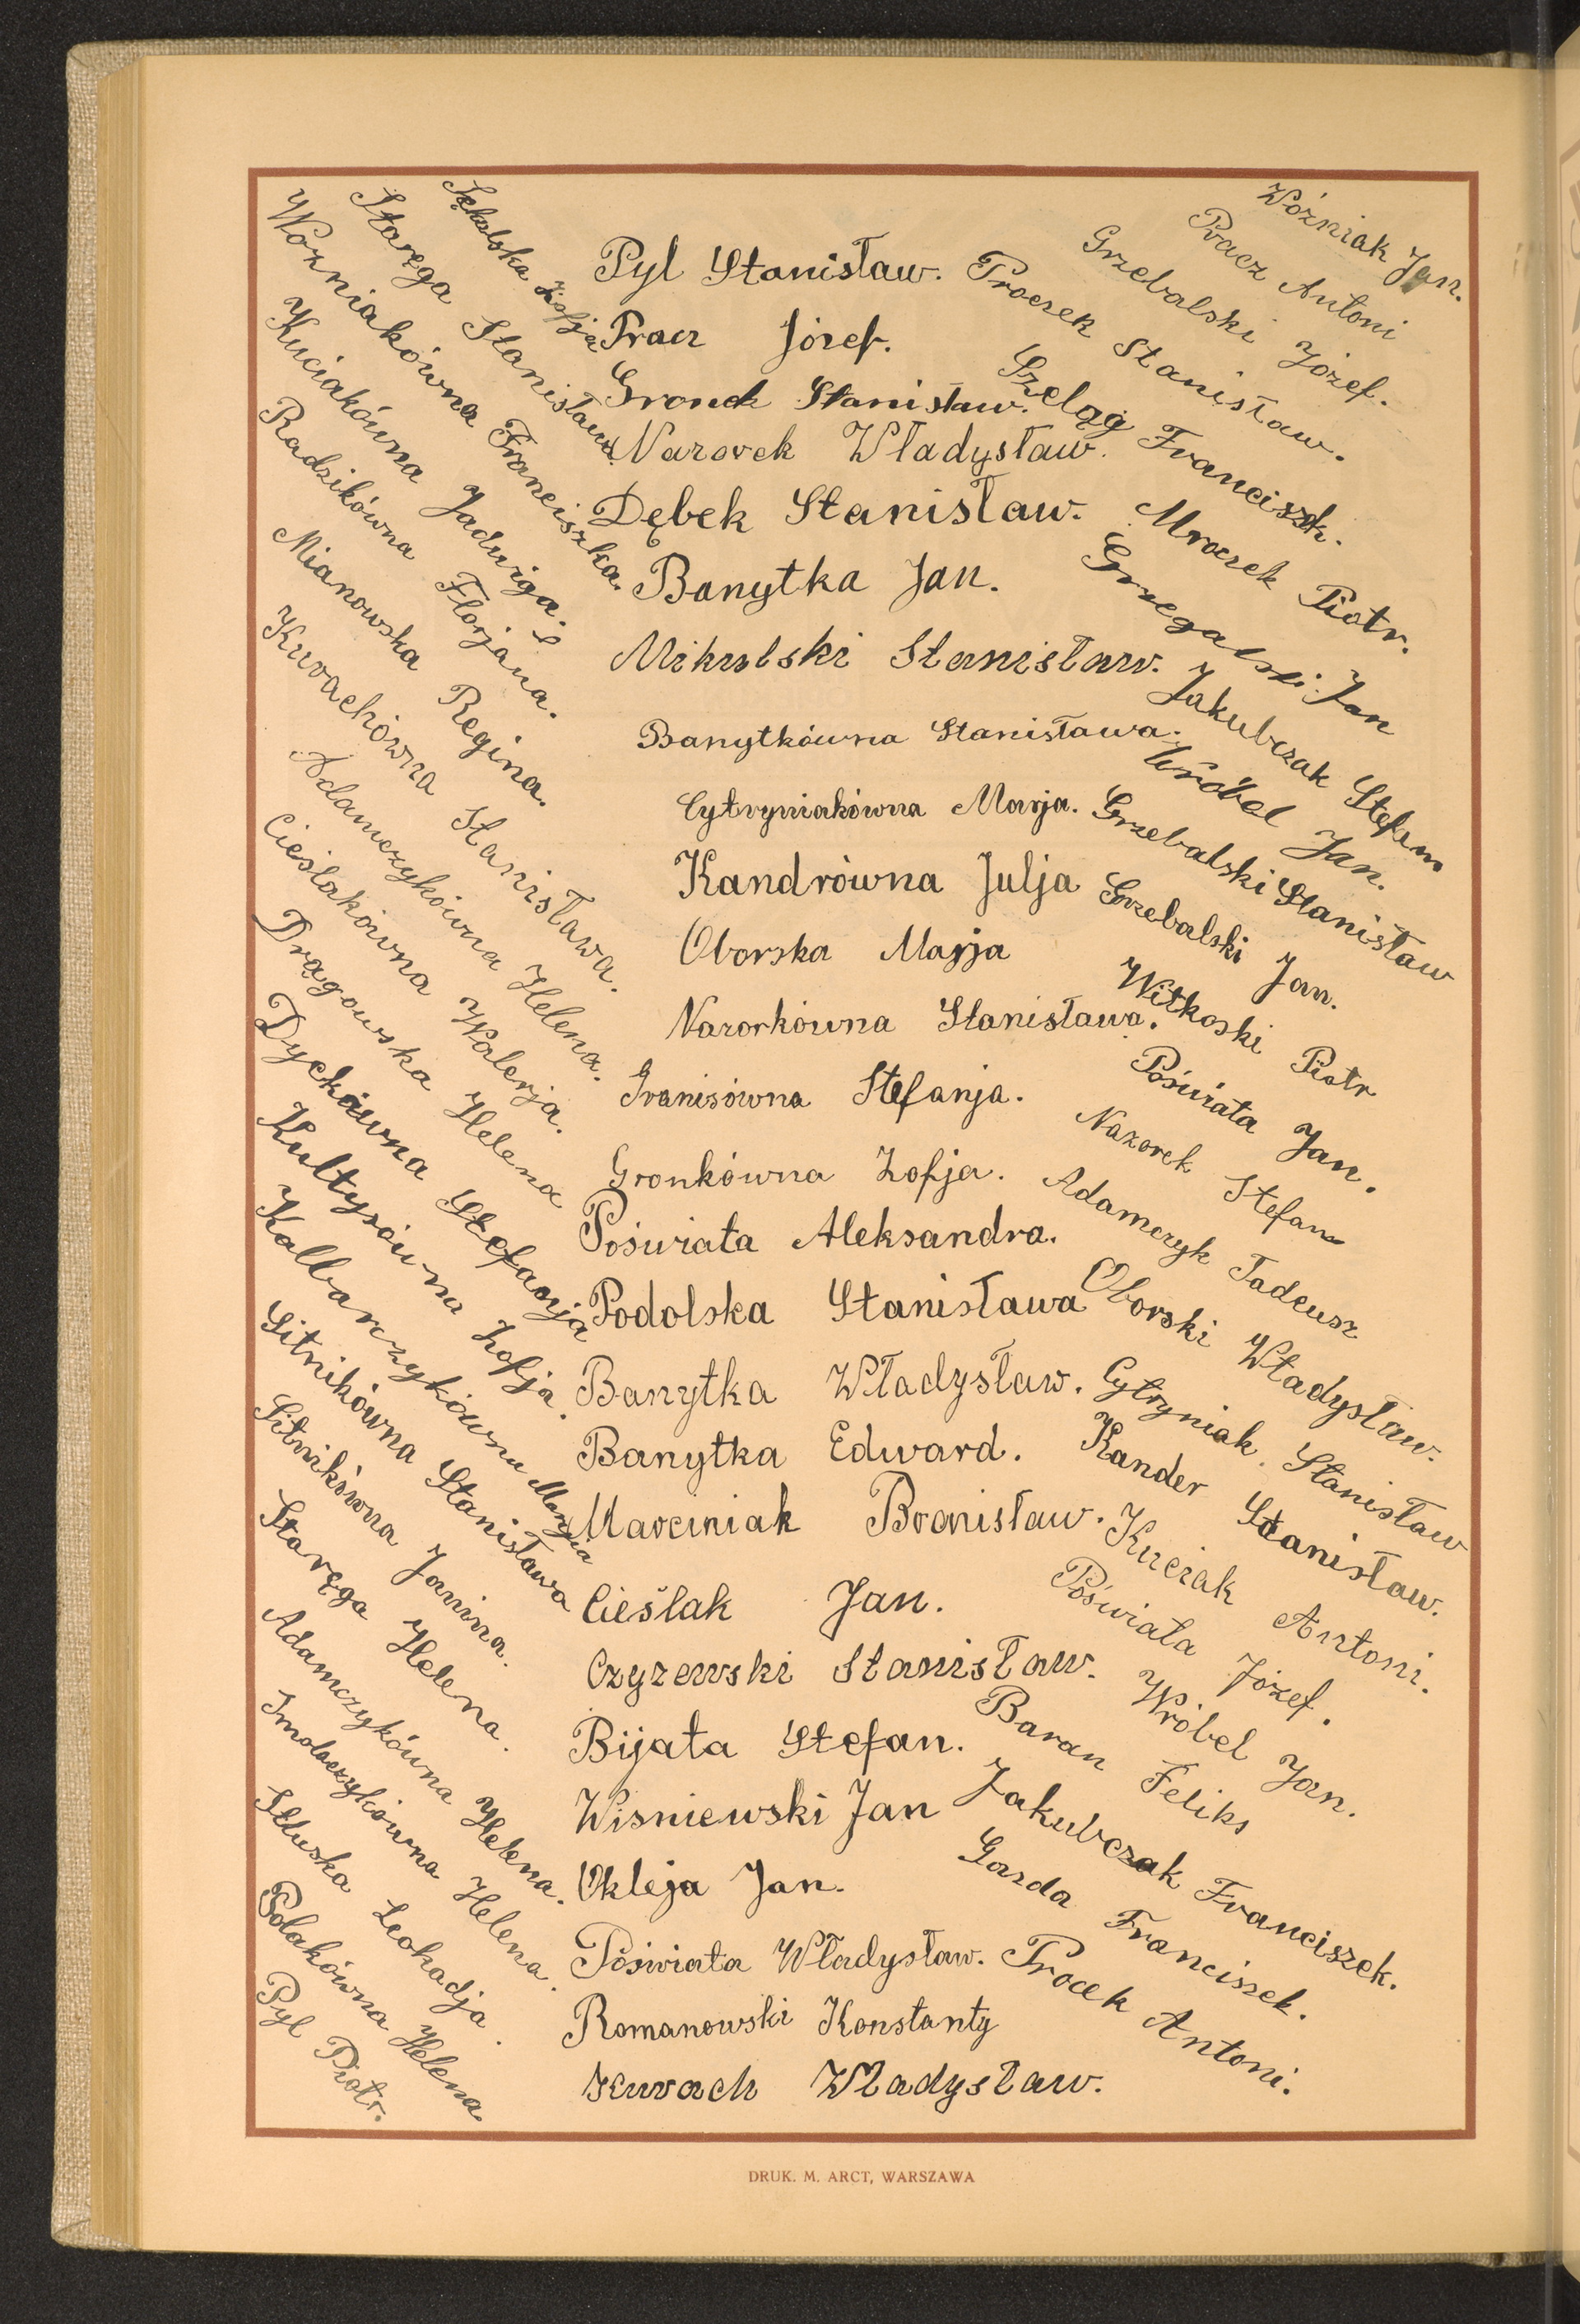 Sękulska Zofja
Staręga Stanisława.
Wozniakówna Franciszka.
Kuciakówna Jadwiga.
Radzikówna Florjana.
Mianowska Regina.
Kuvachówna Stanisława.
Adamczykówna Helena.
Cieślakówna Walerja.
Drągowska Helena
Dyckówna Stefanja
Kultysówna Zofja.
Kalbarczykówna Marja
Sitnikówna Stanisława
Sitnikówna Janina.
Staręga Helena.
Adamczykówna Helena.
Smolaczykówna Helena.
Słuska Leokadja.
Polakówna Helena.
Pyl Piotr.
Pyl Stanisław.
Pracz Józef.
Gronek Stanisław.
Nazorek Władysław.
Dębek Stanisław.
Banytka Jan.
Mikulski Stanisław.
Banytkówna Stanisława.
Cytryniakówna Marja.
Kandrówna Julja
Oborska Marja
Nazorkówna Stanisława.
Franisówna Stefanja.
Gronkówna Zofja.
Pośwjata Aleksandra.
Podolska Stanisława
Banytka Władysław.
Banytka Edward.
Marciniak Bronisław.
Cieślak Jan.
Czyzewski Stanisław.
Bijata Stefan.
Wisniewski Jan
Okleja Jan.
Pośwìata Władysław.
Romanowski Konstanty
Kuvach Władysław.
Woźniak Jan.
Pracz Antoni
Grzebalski Józef.
Proczek Stanisław.
Szeląg Franciszk.
Mroczek Piotr.
Grzegalski Jan
Jakubczak Stefan
Wróbel Jan.
Grzebalski Stanisław
Grzebalski Jan.
Witkoski Piotr
Pośwìata Jan.
Nazorek Stefan
Adamczyk Tadeusz
Oborski Władysław.
Cytryniak. Stanisław
Kander Stanisław.
Kuciak Antoni.
Pośwìata Józef.
Wróbel Jan.
Baran Feliks
Jakubczak Franciszek.
Gazda Franciszek.
Procek Antoni.
DRUK. M. ARCT, WARSZAWA